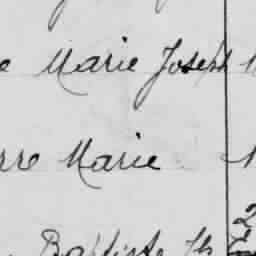 e Marie Joseph
rre Marie
2
Baptiste fs